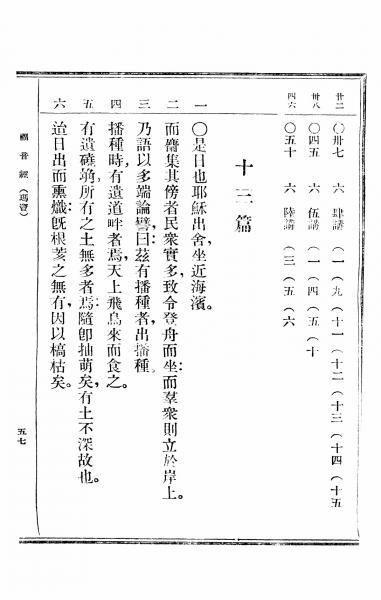 廿二 〇卅七 六 肆講 (一 (九 (十一 (十二 (十三 (十四 (十五
卅八 〇四五 六 伍講 (一 (四 (五 (十
四六 〇五十 六 陸講 (三 (五 (六
十三篇
一 〇是日也耶穌出舍,坐近海濱。
二 而齊集其傍者民衆實多,致令登舟而坐:而羣衆則立於岸上。
三 乃語以多端論譬,曰:茲有播種者出播種。
四 播種時,有遺道畔者焉,天上飛鳥來而食之。
五 有遺磽 ,所有之土無多者焉:隨卽抽萌矣,有土不深故也。
六 迨日出而熏熾旣根荄之無有,因以槁枯矣。
福音經(瑪竇)
五七